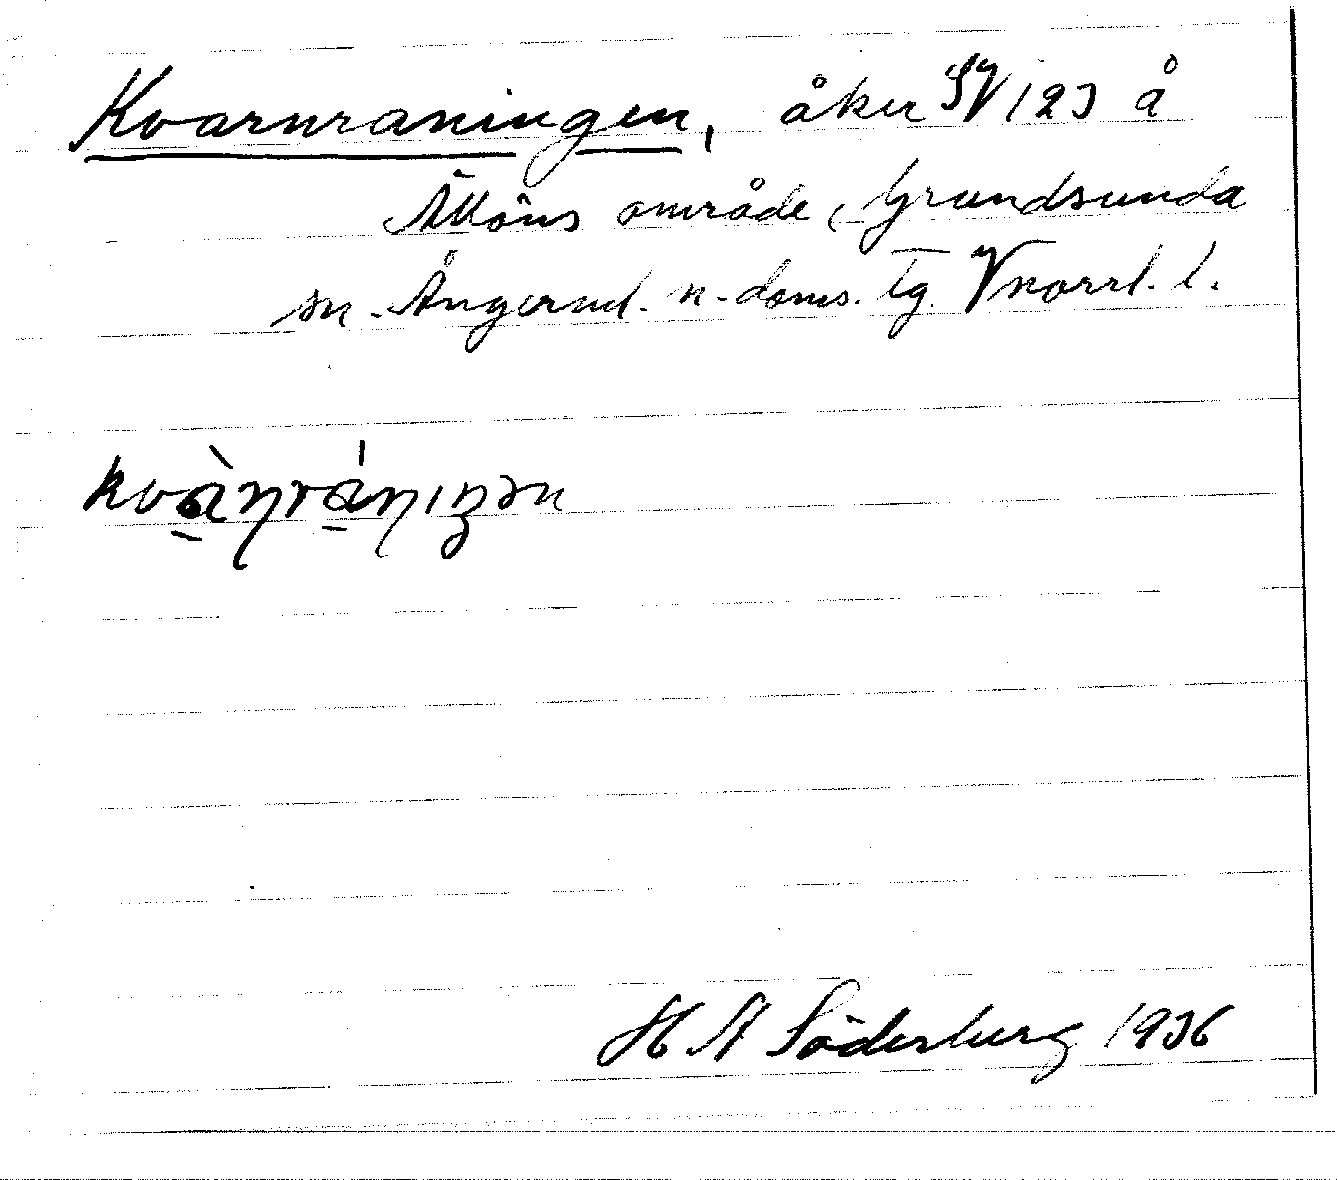 Kvarnraningen, åker SV 123 å
Älöns område, Grundsunda
sn. Ångerml. n. doms. Tg. Vnorrl. l.
H A Söderberg 1936